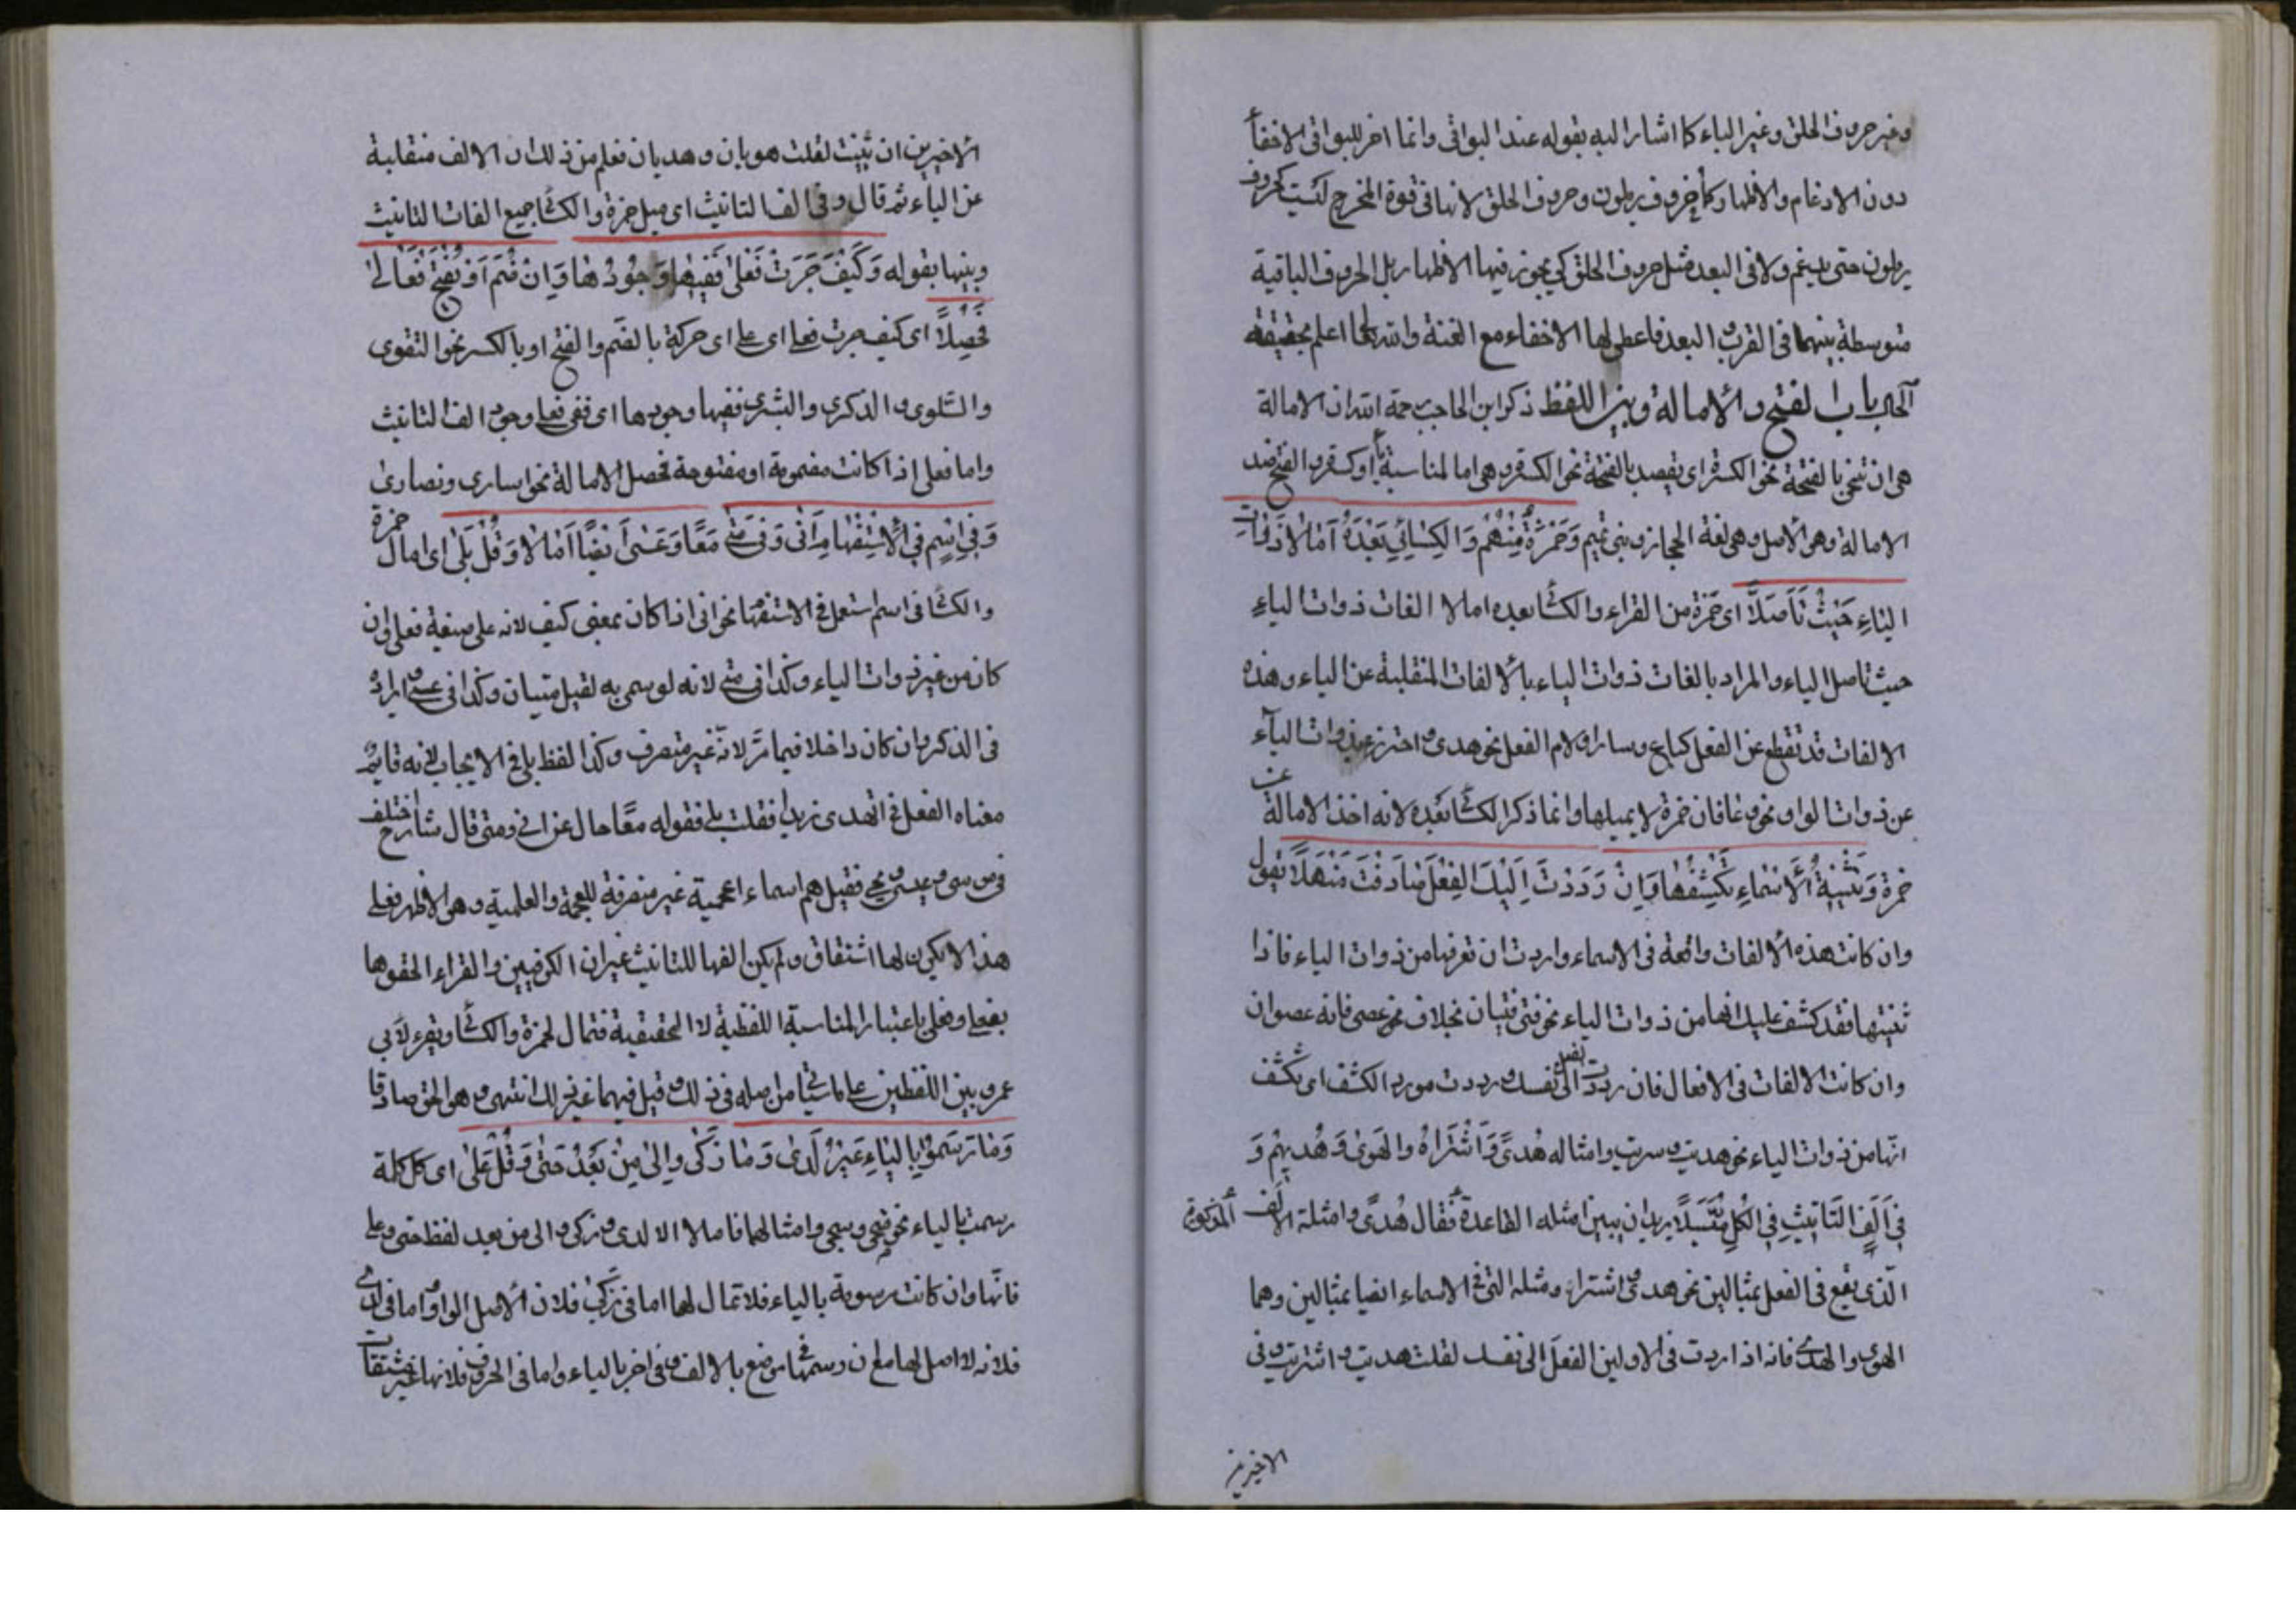 وغير حروف الحلق وغير الباء كما اشار اليه بقوله عند البواقي وانما اختر للبواقي الاخفأ
دون الادغام والاظهار كأخر وف يرملون وحروف الحلق لانها في قوة المخرج ليست كحروف
يرملون حتى يدغم ولا في البعد مثل حروف الحلق كي يجوز فيها الاظهار بل الحروف الباقية
متوسطة بينهما في القرب والبعد فاعطي لها الاخفاء مع الغنة والله تعالى اعلم بحقيقته
باب الفتح والامالة وبين اللفظ ذكر ابن الحاجب رحمة الله ان الامالة
هي ان تنحي بالفتحة نحو الكسرة اي يقصد بالفتحة نحو الكسرة وهي اما لمناسبة ياء او كسرة والفتح ضد
الامالة وهو الاصل وهي لغة الحجاز وبني تميم وَحَمْزَةُ مِنْهُمْ وَالكِسَائِيُّ بَعْدَهُ اَمَالاَ ذَوَاتِ
اليَاءِ حَيْثُ تَأَصَّلاَ اي حمزة من القراء والكسا بعده امالا الفات ذوات الياء
حيث تاصل الياء والمراد بالفات ذوات الياء بالالفات المنقلبة عن الياء وهذه
الالفات قد تقطع عن الفعل كباع وسار او لام الفعل نحو هدى واحترز بذوات الياء
عن ذوات الواو نحو عفا فان حمزة لا يميلها وانما ذكر الكسا بعده لانه اخذ الامالة عن
حمزة وَتَثْنِيَةُ الأَسْمَاءِ تَكْشِفُهَا وَاِنْ رَدَدْتَ اِلَيْكَ الفِعْلَ صَادَفْتَ مَنْهَلاً يقول
وان كانت هذه الالفات واقعة في الاسماء واردت ان تعرفها من ذوات الياء فاذا
ثنيتها فقد كشف عليك انها من ذوات الياء نحو فتى فتيان بخلاف نحو عصى فانه عصوان
وان كانت الالفات في الافعال فان رددت الفعل الى نفسك وردت مورد الكشف اي تكشف
انها من ذوات الياء نحو هديت وسريت وامثاله هُدىً وَاشْتَرَاهُ والهَوَى وَهُديهُمْ وَ
فِي اَلِفِ التَّانِيثِ فِي الكُلِّ مَيَّلاَ يريد ان يبين امثلة القاعدة فقال هُدىً وامثلة الالف المذكورة
الّذي يقع في الفعل بمثالين نحو هدى واشتراه ومثله التي في الاسماء ايضا بمثالين وهما
الهوى والهدى فانه اذا اردت في الاولين الفعل الى نفسك لقلت هديت واشتريت وفي
الاخيرين
الاخيرين ان ثنيت لقلت هويان وهديان فعلم من ذلك ان الالف منقلبة
عن الياء ثم قال وفي الف التانيث اي ميل حمزة والكسا جميع الفات التانيث
وبينها بقوله وَكَيْفَ جَرَتْ فَعْلى فَفِيهَا وُجُودُهَا وَاِنْ ضُمَّ اَوْ يُفْتَحْ فَعَالَى
فَحَصِّلاَ اي كيف جرت فعلى اي على اي حركة بالضم والفتح او بالكسر نحو التقوى
والسلوى والذكرى والبشرى ففيها وجودها اي ففي فعلى وجود الف التانيث
واما فعلى اذا كانت مضمومة او مفتوحة تحصل الامالة نحو اسارى ونصارى
وَفِي اسْمٍ فِي الاِسْتِفْهَامِ اَنَّى وَفِي مَتَى مَعًا وَعَسَى اَيْضًا اَمَالاَ وَقُلْ بَلَى اي امال حمزة
والكسا في اسم استعمل في الاستفهام نحو انى اذا كان بمعنى كيف لانه على صيغة فعلى وان
كان من غير ذوات الياء وكذا في متى لانه لو سمي به لقيل متيان وكذا في عسى وافراده
في الذكر وان كان داخلا فيما مرّ لانّه غير متصرف وكذا لفظ بلى في الايجاب لانه قايم
معناه الفعل في اتهدى زيدا فقلت بلى فقوله معًا حال عن انى ومتى قال شارح اختلف
في موسى وعيسى ويحيى فقيل هم اسماء اعجمية غير منصرفة للعجمة والعلمية وهو الاظهر فعلى
هذا لا يكون لها اشتقاق ولم يكن الفها للتانيث غير ان الكوفيين والقراء الحقوها
بفعلى وفعلى باعتبار المناسبة اللفظية لا الحقيقية فتمال لحمزة والكسا ويقرء لابي
عمرو بين اللفظين على ما سيأتي من اصله في ذلك وقيل فيهما غير ذلك انتهى وهو الحق صادقا
وَمَا رَسَمُوا بِاليَاءِ غَيْرُ لَدَى وَمَا زَكَى وَاِلَى مِنْ بَعْدُ حَتَّى وَقُلْ عَلَى اي كل كلمة
رسمت بالياء نحو ضحى وسجى وامثالهما فامالا الا لدى وزكى والى من بعد لفظ حتى وعلى
فانّها وان كانت مرسومة بالياء فلا تمال لها اما في زكى فلان الاصل الواو واما في لدى
فلانه لا اصل لها مع ان رسمها في موضع بالالف وفي اخر بالياء واما في الحروف فلانها غير مشتقات